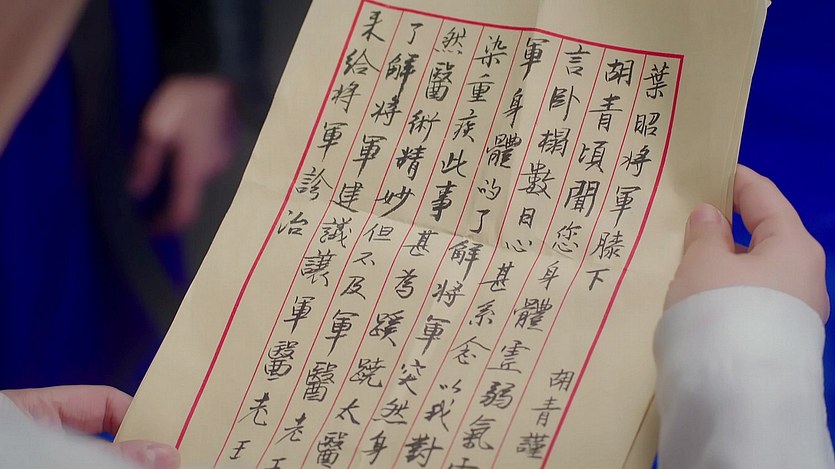 葉昭將軍膝下 胡青謹
胡青頃聞您身體虛弱氣
言卧榻數日心甚系念以我對
軍身體的了解將軍突然身
染重疾此事甚為蹊蹺太醫
然醫術精妙但不及軍醫老王
了解將軍建議讓軍醫老王
來給將軍診治